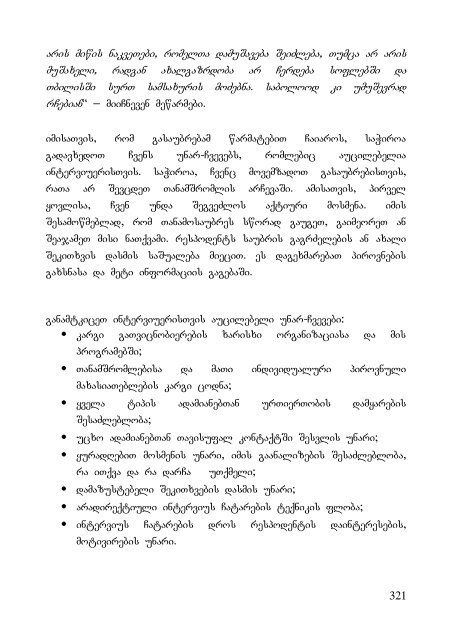 არის მიწის ნაკვეთები, რომელთა დამუშავება შეიძლება, თუმცა არ არის
მუშახელი, რადგან ახალგაზრდობა არ ჩერდება სოფლებში და
თბილისში სურთ სამსახურის მოძებნა. საბოლოოდ კი უმუშევრად
რჩებიან“ – მიიჩნევენ მეწარმები.
იმისათვის, რომ გასაუბრებამ წარმატებით ჩაიაროს, საჭიროა
გადავხედოთ ჩვენს უნარ-ჩვევებს, რომლებიც აუცილებელია
ინტერვიუერისთვის. საჭიროა, ჩვენც მოვემზადოთ გასაუბრებისთვის,
რათა არ შევცდეთ თანამშრომლის არჩევაში. ამისათვის, პირველ
ყოვლისა, ჩვენ უნდა შეგვეძლოს აქტიური მოსმენა. იმის
შესამოწმებლად, რომ თანამოსაუბრეს სწორად გაუგეთ, გაიმეორეთ ან
შეაჯამეთ მისი ნათქვამი. რესპოდენტს საუბრის გაგრძელების ან ახალი
შეკითხვის დასმის საშუალება მიეცით. ეს დაგეხმარებათ პიროვნების
გახსნასა და მეტი ინფორმაციის გაგებაში.
განამტკიცეთ ინტერვიუერისთვის აუცილებელი უნარ-ჩვევები:
• კარგი გათვიცნობიერების ხარისხი ორგანიზაციასა და მის
პროგრამებში;
• თანამშრომლებისა და მათი ინდივიდუალური პიროვნული
მახასიათებლების კარგი ცოდნა;
• ყველა ტიპის ადამიანებთან ურთიერთობის დამყარების
შესაძლებლობა;
• უცხო ადამიანებთან თავისუფალ კონტაქტში შესვლის უნარი;
• ყურადღებით მოსმენის უნარი, იმის გაანალიზების შესაძლებლობა,
რა ითქვა და რა დარჩა უთქმელი;
• დამაზუსტებელი შეკითხვების დასმის უნარი;
• არადირექტიული ინტერვიუს ჩატარების ტექნიკის ფლობა;
• ინტერვიუს ჩატარების დროს რესპოდენტის დაინტერესების,
მოტივირების უნარი.
321